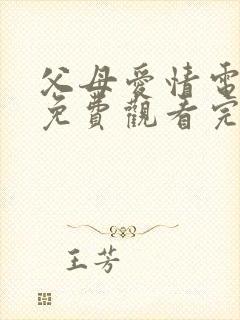 父母愛情電
免費觀看完
王芳